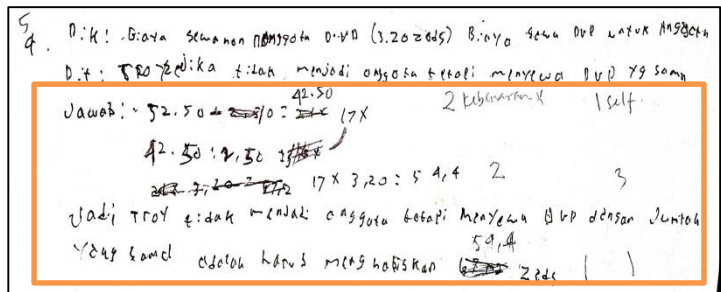 5
4. Dik: Biaya sewa non anggota DVD (3.20 zeds) Biaya sewa DVD untuk Anggota
Dit: TROY jika tidak menjadi anggota tetapi menyewa DVD yg sama
Jawab: 52.50 - 10 = 42.50 17x 2 kebenaran x 1 self.
42.50 : 2,50
17 x 3,20 = 54,4 2 3
Jadi TROY tidak menjadi anggota tetapi menyewa DVD dengan Jumlah
Yang sama adalah harus menghabiskan 54,4 zeds 1 1